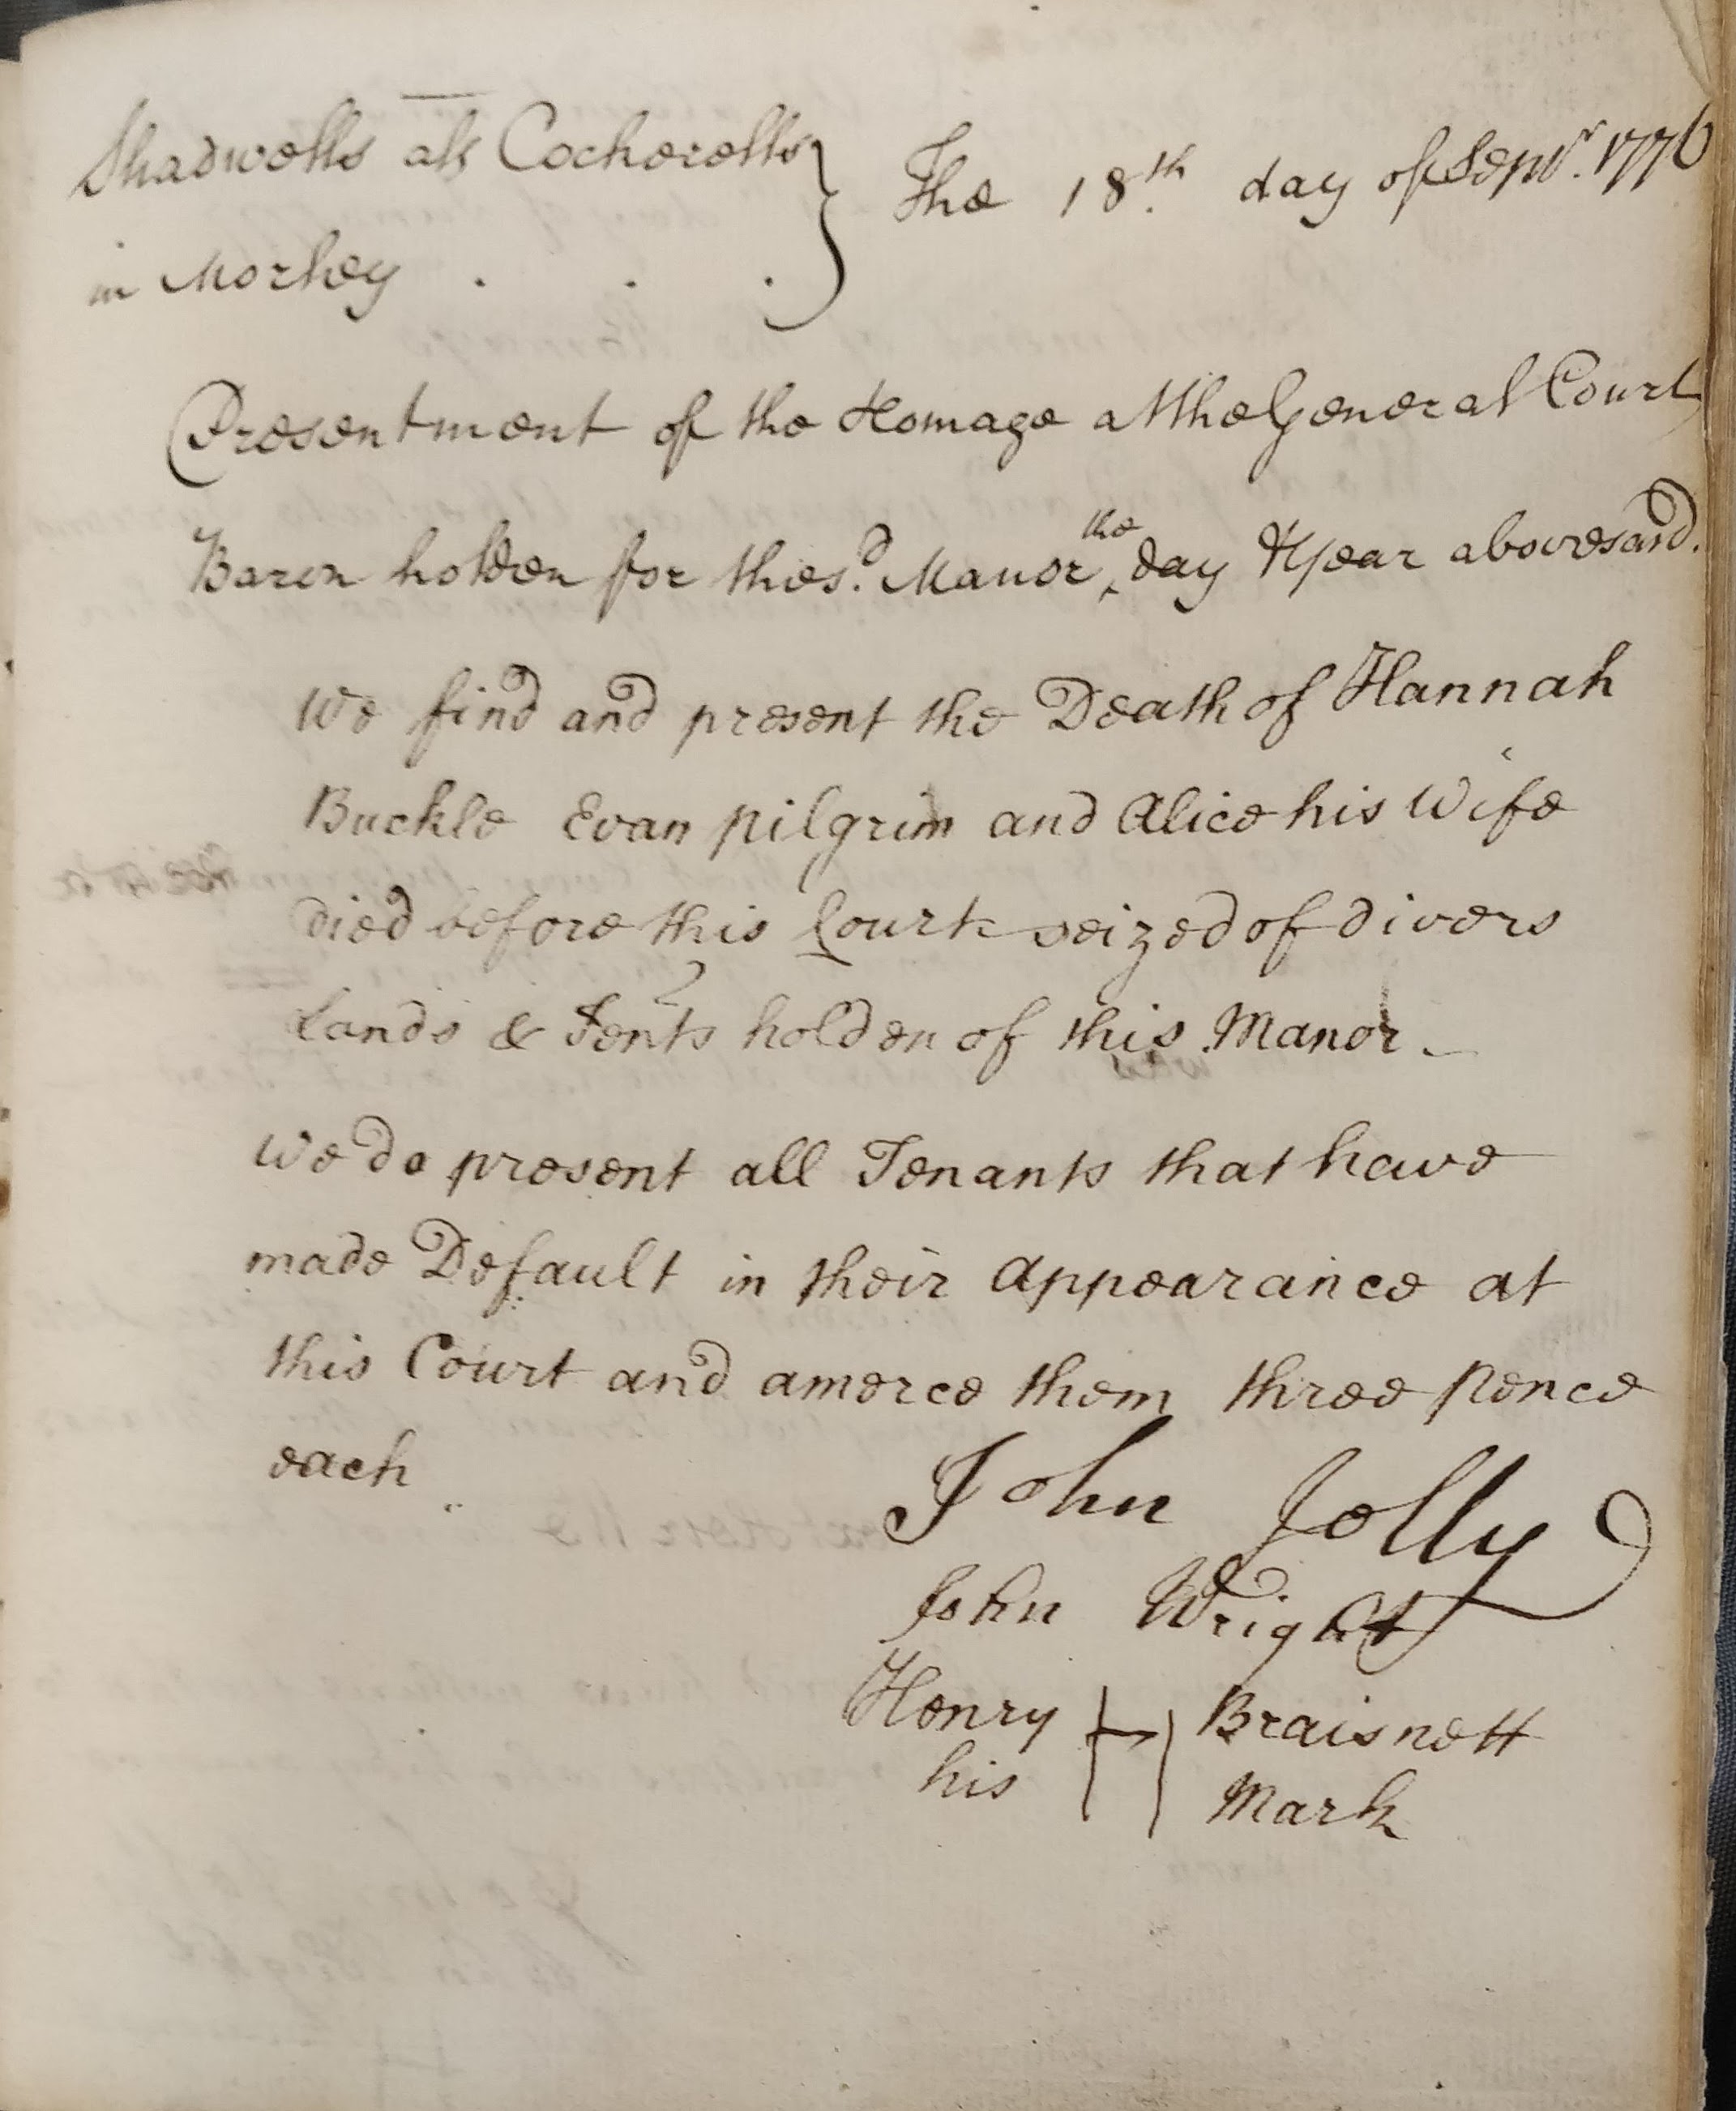 Shadwells als Cockerells
in Morley . . . } The 18th day of Sepr. 1776
Presentment of the Homage at the General Court
Baron holden for the sd. Manor the day & year abovesaid.
We find and present the Death of Hannah
Buckle Evan pilgrim and Alice his Wife
died before this Court seized of divers
Lands & Tents holden of this Manor
We do present all Tenants that have
made Default in their appearance at
this Court and amerce them three pence
each
John Jolly
John Wright
Henry H Braisnett
his Mark